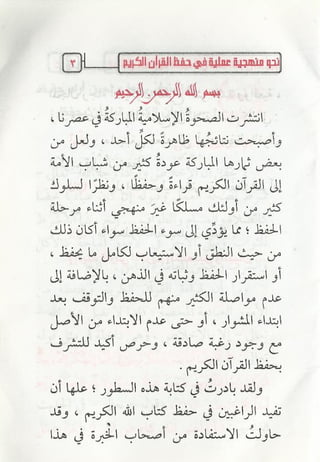 نحو منهجية عملية في حفظ القرآن الكريم
٣
بسم الله الرحمن الرحيم
انتشرت الصحوةُ الإسلاميةُ المباركةُ في عصرنا ،
وأصبحت نتائجُها ظاهرةً لكلِّ أحد ، ولعل من
بعض ثمارها المباركة عودةُ كثير من شباب الأمة
إلى القرآن الكريم قراءةً وحفظًا ، ونظرًا لسلوك
كثير من أولئك مسلكًا غيرَ منهجي أثناء مرحلة
الحفظ ؛ مما يؤدِّي إلى سوء الحفظ سواء أكان ذلك
من حيث النطق أو الاستيعاب لكامل ما يحفظ ،
أو استقرار الحفظ وثباته في الذهن ، بالإضافة إلى
عدم مواصلة الكثير منهم للحفظ والتوقف بعد
ابتداء المشوار ، أو حتى عدم الابتداء من الأصل
مع وجود رغبة صادقة ، وحرص أكيد للتشرف
بحفظ القرآن الكريم .
ولقد بادرتُ في كتابة هذه السطور ؛ علها أن
تفيد الراغبين في حفظ كتاب الله الكريم ، وقد
حاولتُ الاستفادة من أصحاب الخبرة في هذا